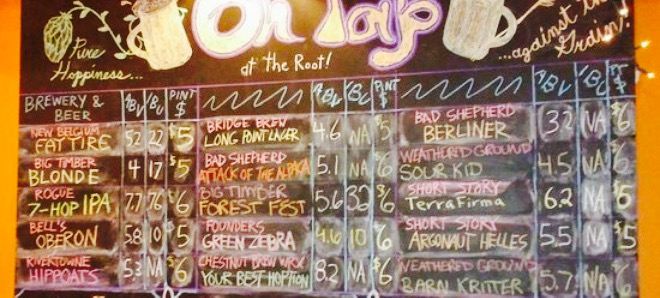 On Tap
at the Root!
Pure
Hoppiness...
...against the
Grain!
BREWERY &
BEER
ABV IBU PINT
$
ABV IBU PINT
$
ABV IBU
NEW BELGIUM
FAT TIRE 5.2 22 $5
BIG TIMBER
BLONDE 4 17 $5
ROGUE
7-HOP IPA 7.7 76 $6
BELL'S
OBERON 5.8 10 $5
RIVERTOWNE
HIPPOATS 5.3 NA $6
BRIDGE BREW
LONG POINT LAGER 4.6 NA $5
BAD SHEPHERD
ATTACK OF THE ALPAKA 5.1 NA $6
BIG TIMBER
FOREST FEST 5.6 32 $6
FOUNDERS
GREEN ZEBRA 4.6 10 6
CHESTNUT BREW WRX
YOUR BEST HOPTION 8.2 NA $6
BAD SHEPHERD
BERLINER 3.2 NA $6
WEATHERED GROUND
SOUR KID 4.5 NA 6
SHORT STORY
TerraFirma 6.2 NA 5
SHORT STORY
ARGONAUT HELLES 5.5 NA $5
WEATHERED GROUND
BARN KRITTER 5. NA 6